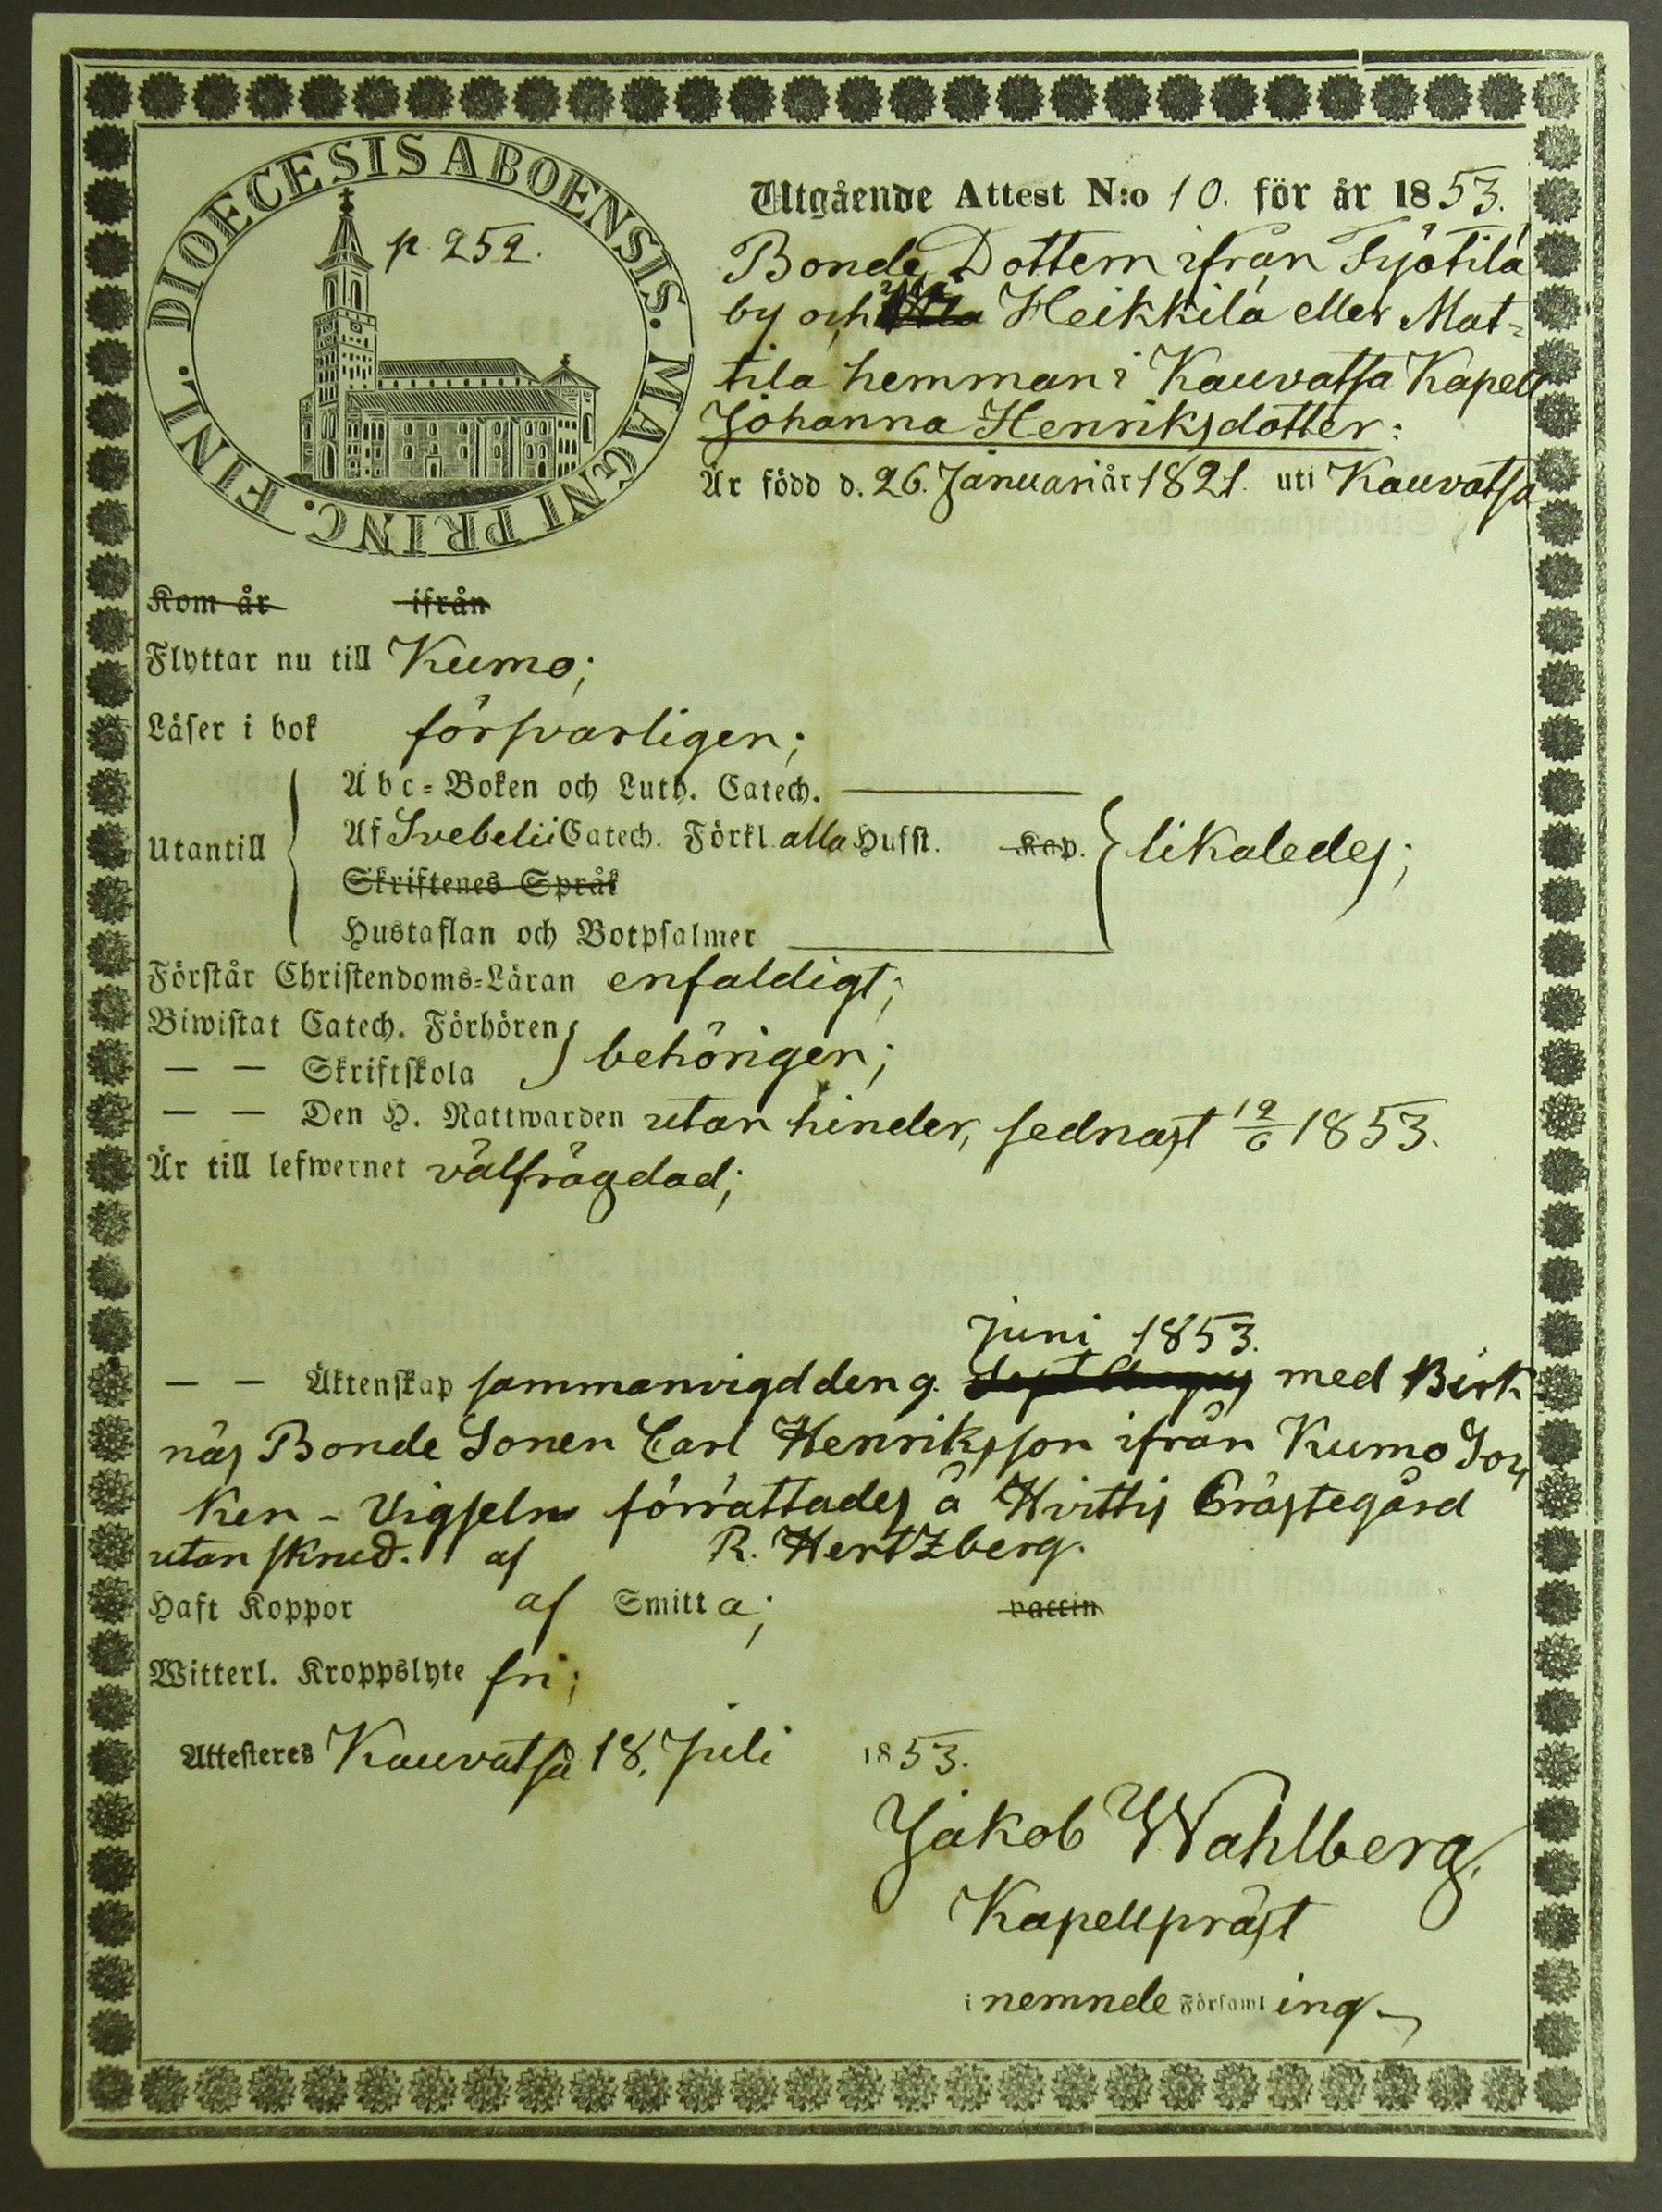 DIOECESIS ABOENSIS. MAGNI PRINC. FINL.
p. 252.
Utgående Attest N:o 10. för år 1853.
Bonde Dottern ifrån Työtilä
by och Heikkilä eller Mat=
tila hemman i Kauvatsa Kapell
Johanna Henriksdotter:
Är född d. 26. Januari år 1821. uti Kauvatsa
Kom år ifrån
Flyttar nu till Kumo;
Läser i bok försvarligen;
Abc=Boken och Luth. Catech.
Utantill Af Svebelii Catech. Förkl. alla Hufst. Kap. likaledes;
Skriftenes Språk
Hustaflan och Botpsalmer
Förstår Christendoms=Läran enfaldigt;
Biwistat Catech. Förhören behörigen;
— — Skriftskola
— — Den H. Nattwarden utan hinder, sednast 12/6 1853.
Är till lefwernet välfrägdad;
Juni 1853.
— — Äktenskap sammanvigd den 9. med Birk
näs Bonde Sonen Carl Henriksson ifrån Kumo Soc
ken - Vigseln förrättades å Hvittis Prästegård
utan skrud. af R. Hertzberg.
Haft Koppor af Smitta; vaccin
Witterl. Kroppslyte fri;
Attesteres Kauvatsa 18. Juli 1853.
Jakob Wahlberg,
Kapellpräst
i nemnde Församling